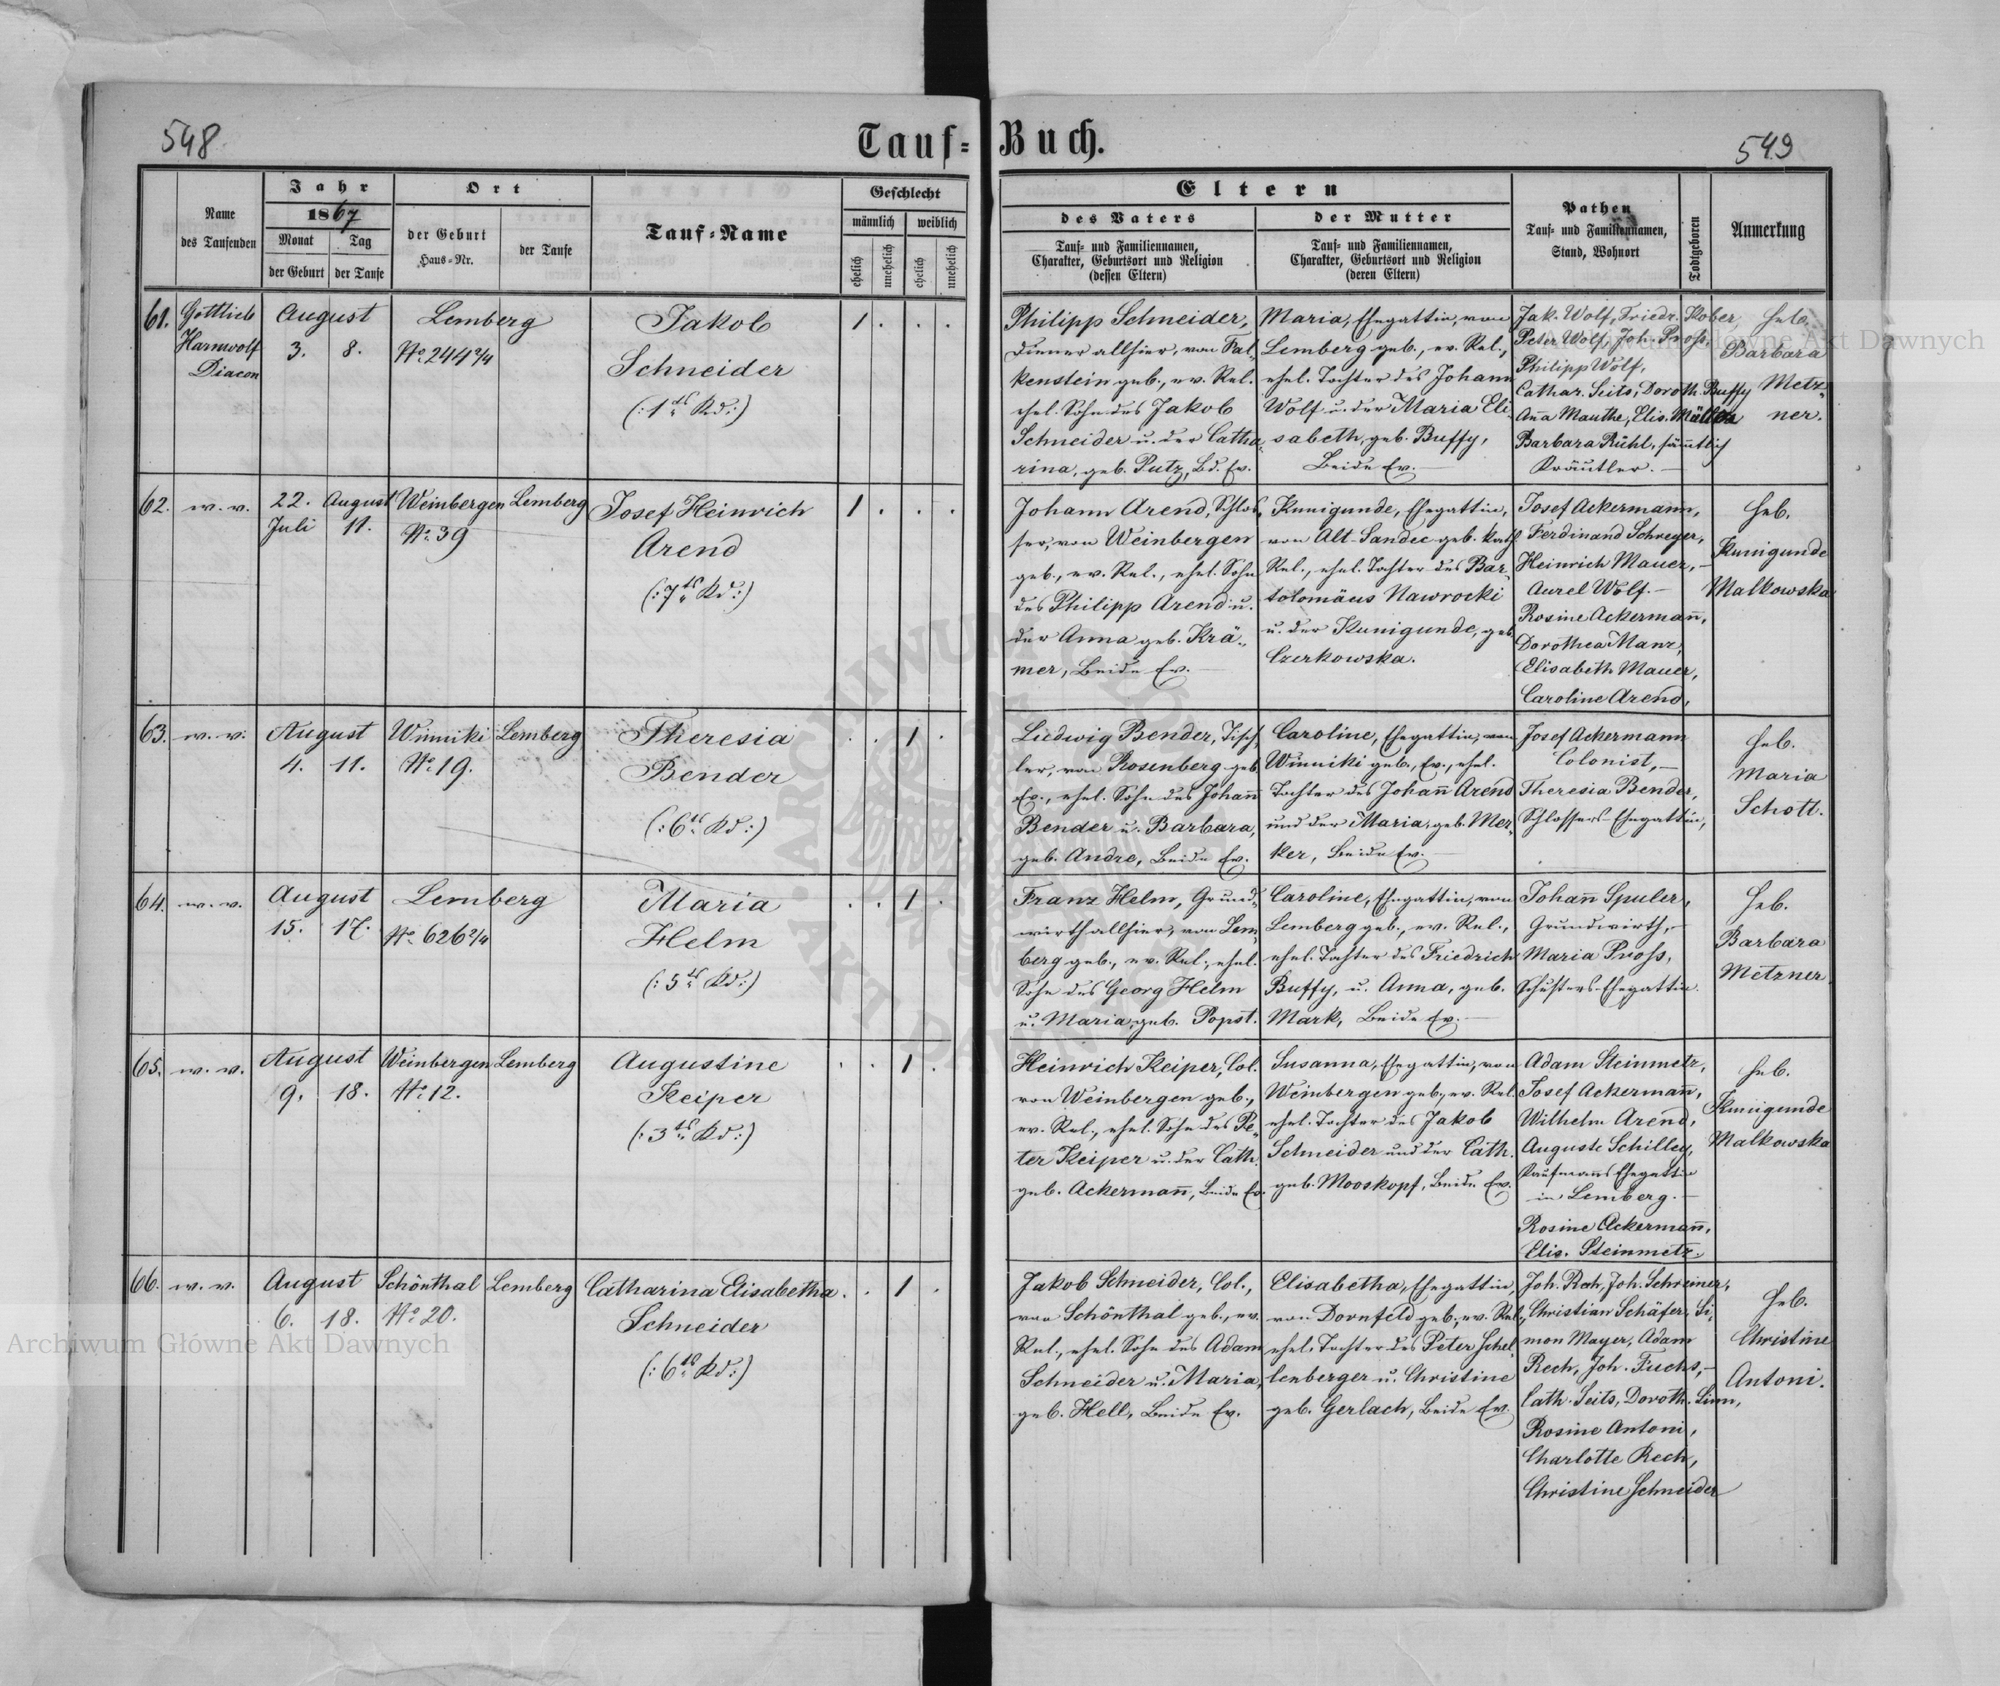 548
Tauf-Buch.
549
Name
des Taufenden
Jahr
1867
Monat
Tag
der Geburt
der Taufe
Ort
der Geburt
Haus-Nr.
der Taufe
Tauf-Name
Geschlecht
männlich
weiblich
ehelich
unehelich
ehelich
unehelich
Eltern
des Vaters
Tauf- und Familiennamen,
Charakter, Geburtsort und Religion
(dessen Eltern)
der Mutter
Tauf- und Familiennamen,
Charakter, Geburtsort und Religion
(deren Eltern)
Pathen
Tauf- und Familiennamen,
Stand, Wohnort
Todtgeboren
Anmerkung
61.
Gottlieb
Harnwolf
Diacon
August
3. 8.
Lemberg
No. 244 2/4
Jakob
Schneider
(: 1tes Kd :)
1 . . .
Philipp Schneider,
Diener allhier, von Fal-
kenstein geb., ev. Rel.
ehel. Sohn des Jakob
Schneider u. der Catha-
rina, geb. Putz, Bd. Ev.
Maria, Ehegattin, von
Lemberg geb., ev. Rel.,
ehel. Tochter des Johann
Wolf u. der Maria Eli-
sabeth, geb. Buffy,
Beide Ev.
Jak. Wolf, Friedr. Kober,
Peter Wolf, Joh. Pross,
Philipp Wolf,
Cathar. Seits, Doroth. Buffy
Anna Mauthe, Elis. Müller
Barbara Rühl, sämmtlich
Kräutler.
Heb.
Barbara
Metz-
ner.
62.
w. v.
22. August
Juli 11.
Weinbergen
No. 39
Lemberg
Josef Heinrich
Arend
(: 7tes Kd :)
1 . . .
Johann Arend, Schlos-
ser, von Weinbergen
geb., ev. Rel., ehel. Sohn
des Philipp Arend u.
der Anna geb. Krä-
mer, Beide Ev.
Kunigunde, Ehegattin,
von Alt-Sandec geb. kath.
Rel., ehel. Tochter des Bar-
tolomäus Nawrocki
u. der Kunigunde, geb.
Czerkowska.
Josef Ackermann,
Ferdinand Schreyer,
Heinrich Mauer,
Aurel Wolf.
Rosine Ackermann,
Dorothea Manz,
Elisabeth Mauer,
Caroline Arend,
Heb.
Kunigunde
Malkowska
63.
w. v.
August
4. 11.
Winniki
No. 19.
Lemberg
Theresia
Bender
(: 6tes Kd :)
. . 1 .
Ludwig Bender, Tisch-
ler, von Rosenberg geb.
Ev., ehel. Sohn des Johann
Bender u. Barbara,
geb. Andre, Beide Ev.
Caroline, Ehegattin, von
Winniki geb., Ev., ehel.
Tochter des Johann Arend
und der Maria, geb. Mer-
ker, Beide Ev.
Josef Ackermann
Colonist,
Theresia Bender,
Schlossers Ehegattin,
Heb.
Maria
Schott.
64.
w. v.
August
15. 17.
Lemberg
No. 626 2/4
Maria
Helm
(: 5tes Kd :)
. . 1 .
Franz Helm, Grund-
wirth allhier, von Lem-
berg geb., ev. Rel., ehel.
Sohn des Georg Helm
u. Maria, geb. Popst.
Caroline, Ehegattin, von
Lemberg geb., ev. Rel.,
ehel. Tochter des Friedrich
Buffy, u. Anna, geb.
Mark, Beide Ev.
Johann Spuler,
Grundwirth,
Maria Pross,
Schusters-Ehegattin.
Heb.
Barbara
Metzner
65.
w. v.
August
9. 18.
Weinbergen
No. 12.
Lemberg
Augustine
Keiper
(: 3tes Kd :)
. . 1 .
Heinrich Keiper, Col.
von Weinbergen geb.,
ev. Rel., ehel. Sohn des Pe-
ter Keiper u. der Cath.
geb. Ackermann, Beide Ev.
Susanna, Ehegattin, von
Weinbergen geb., ev. Rel.
ehel. Tochter des Jakob
Schneider und der Cath.
geb. Mooskopf, Beide Ev.
Adam Steinmetz,
Josef Ackermann,
Wilhelm Arend,
Auguste Schilley,
Kaufmanns Ehegattin
in Lemberg.
Rosine Ackermann,
Elis. Steinmetz.
Heb.
Kunigunde
Malkowska
66.
w. v.
August
6. 18.
Schönthal
No. 20.
Lemberg
Catharina Elisabetha
Schneider
(: 6tes Kd :)
. . 1 .
Jakob Schneider, Col.,
von Schönthal geb., ev.
Rel., ehel. Sohn des Adam
Schneider u. Maria,
geb. Hell, Beide Ev.
Elisabetha, Ehegattin,
von Dornfeld geb., ev. Rel.,
ehel. Tochter des Peter Schel-
lenberger u. Christine
geb. Gerlach, Beide Ev.
Joh. Rech, Joh. Schreiner,
Christian Schäfer, Si-
mon Mayer, Adam
Rech, Joh. Fuchs,
Cath. Seits, Doroth. Linn,
Rosine Antoni,
Charlotte Rech,
Christine Schneider
Heb.
Christine
Antoni.
Archiwum Główne Akt Dawnych
Archiwum Główne Akt Dawnych